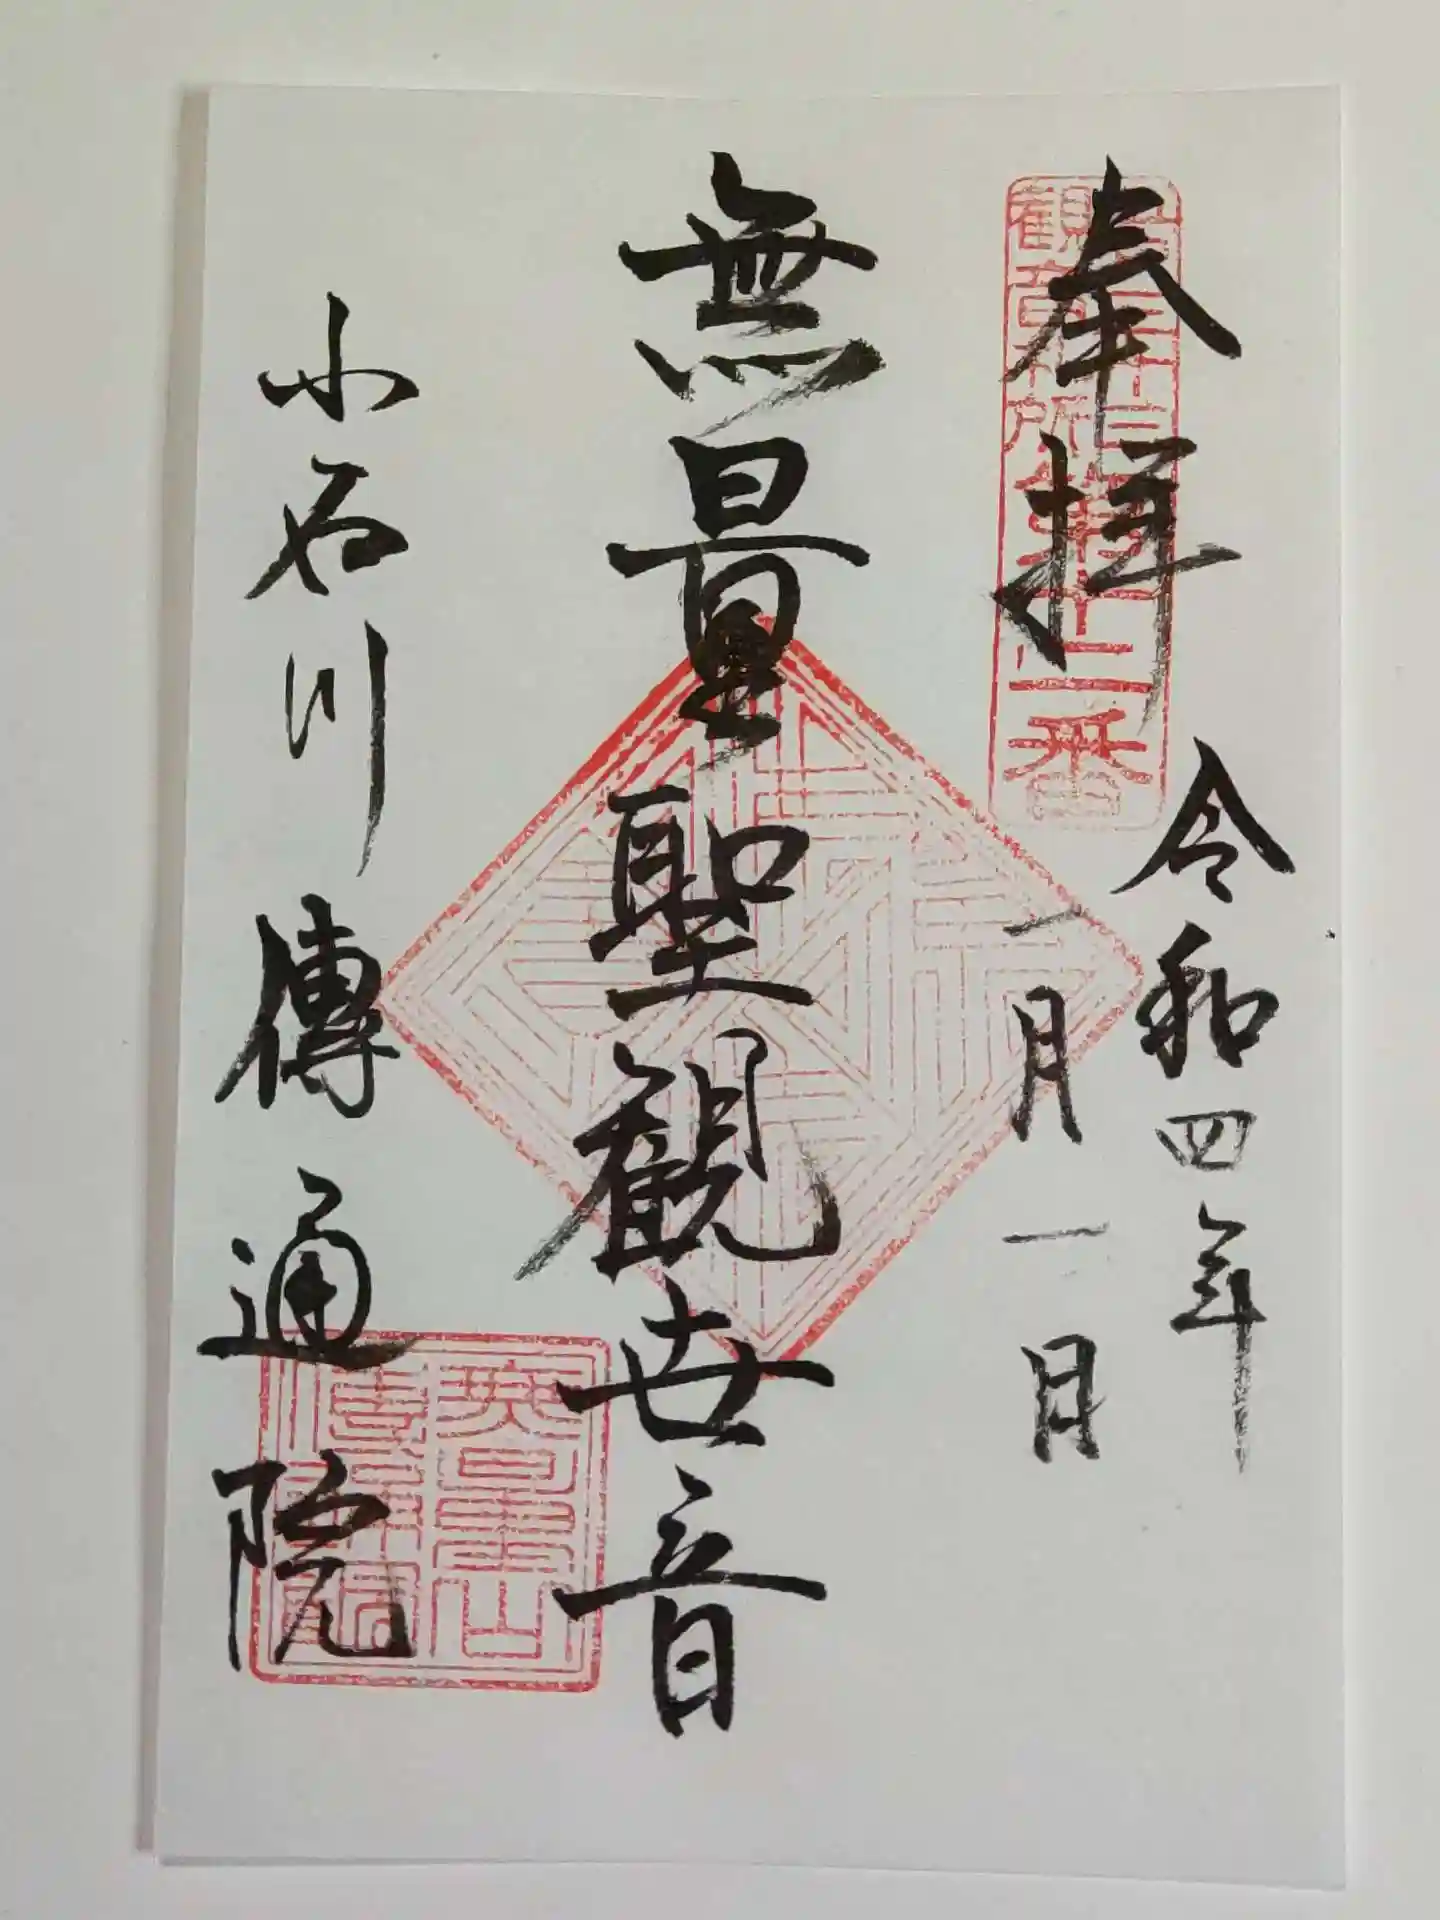 奉拝
三十三
観音札所
第十二番
令和四年
一月一日
無量聖観世音
小石川傳通院
無量山